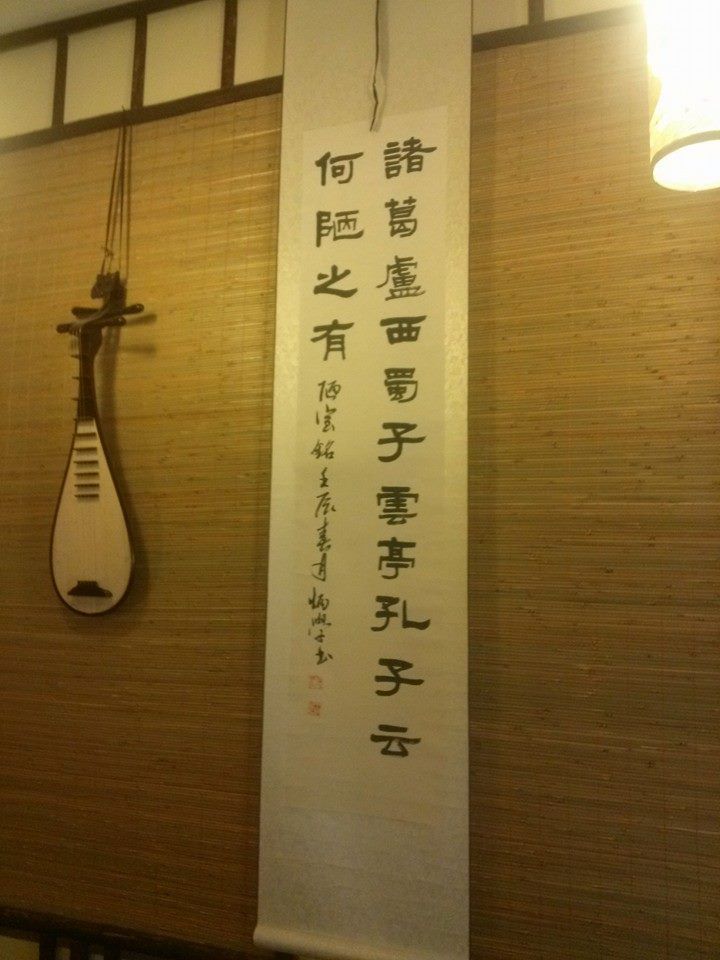 諸葛盧西蜀子雲亭孔子云
何陋之有
陋室銘壬辰春月炳